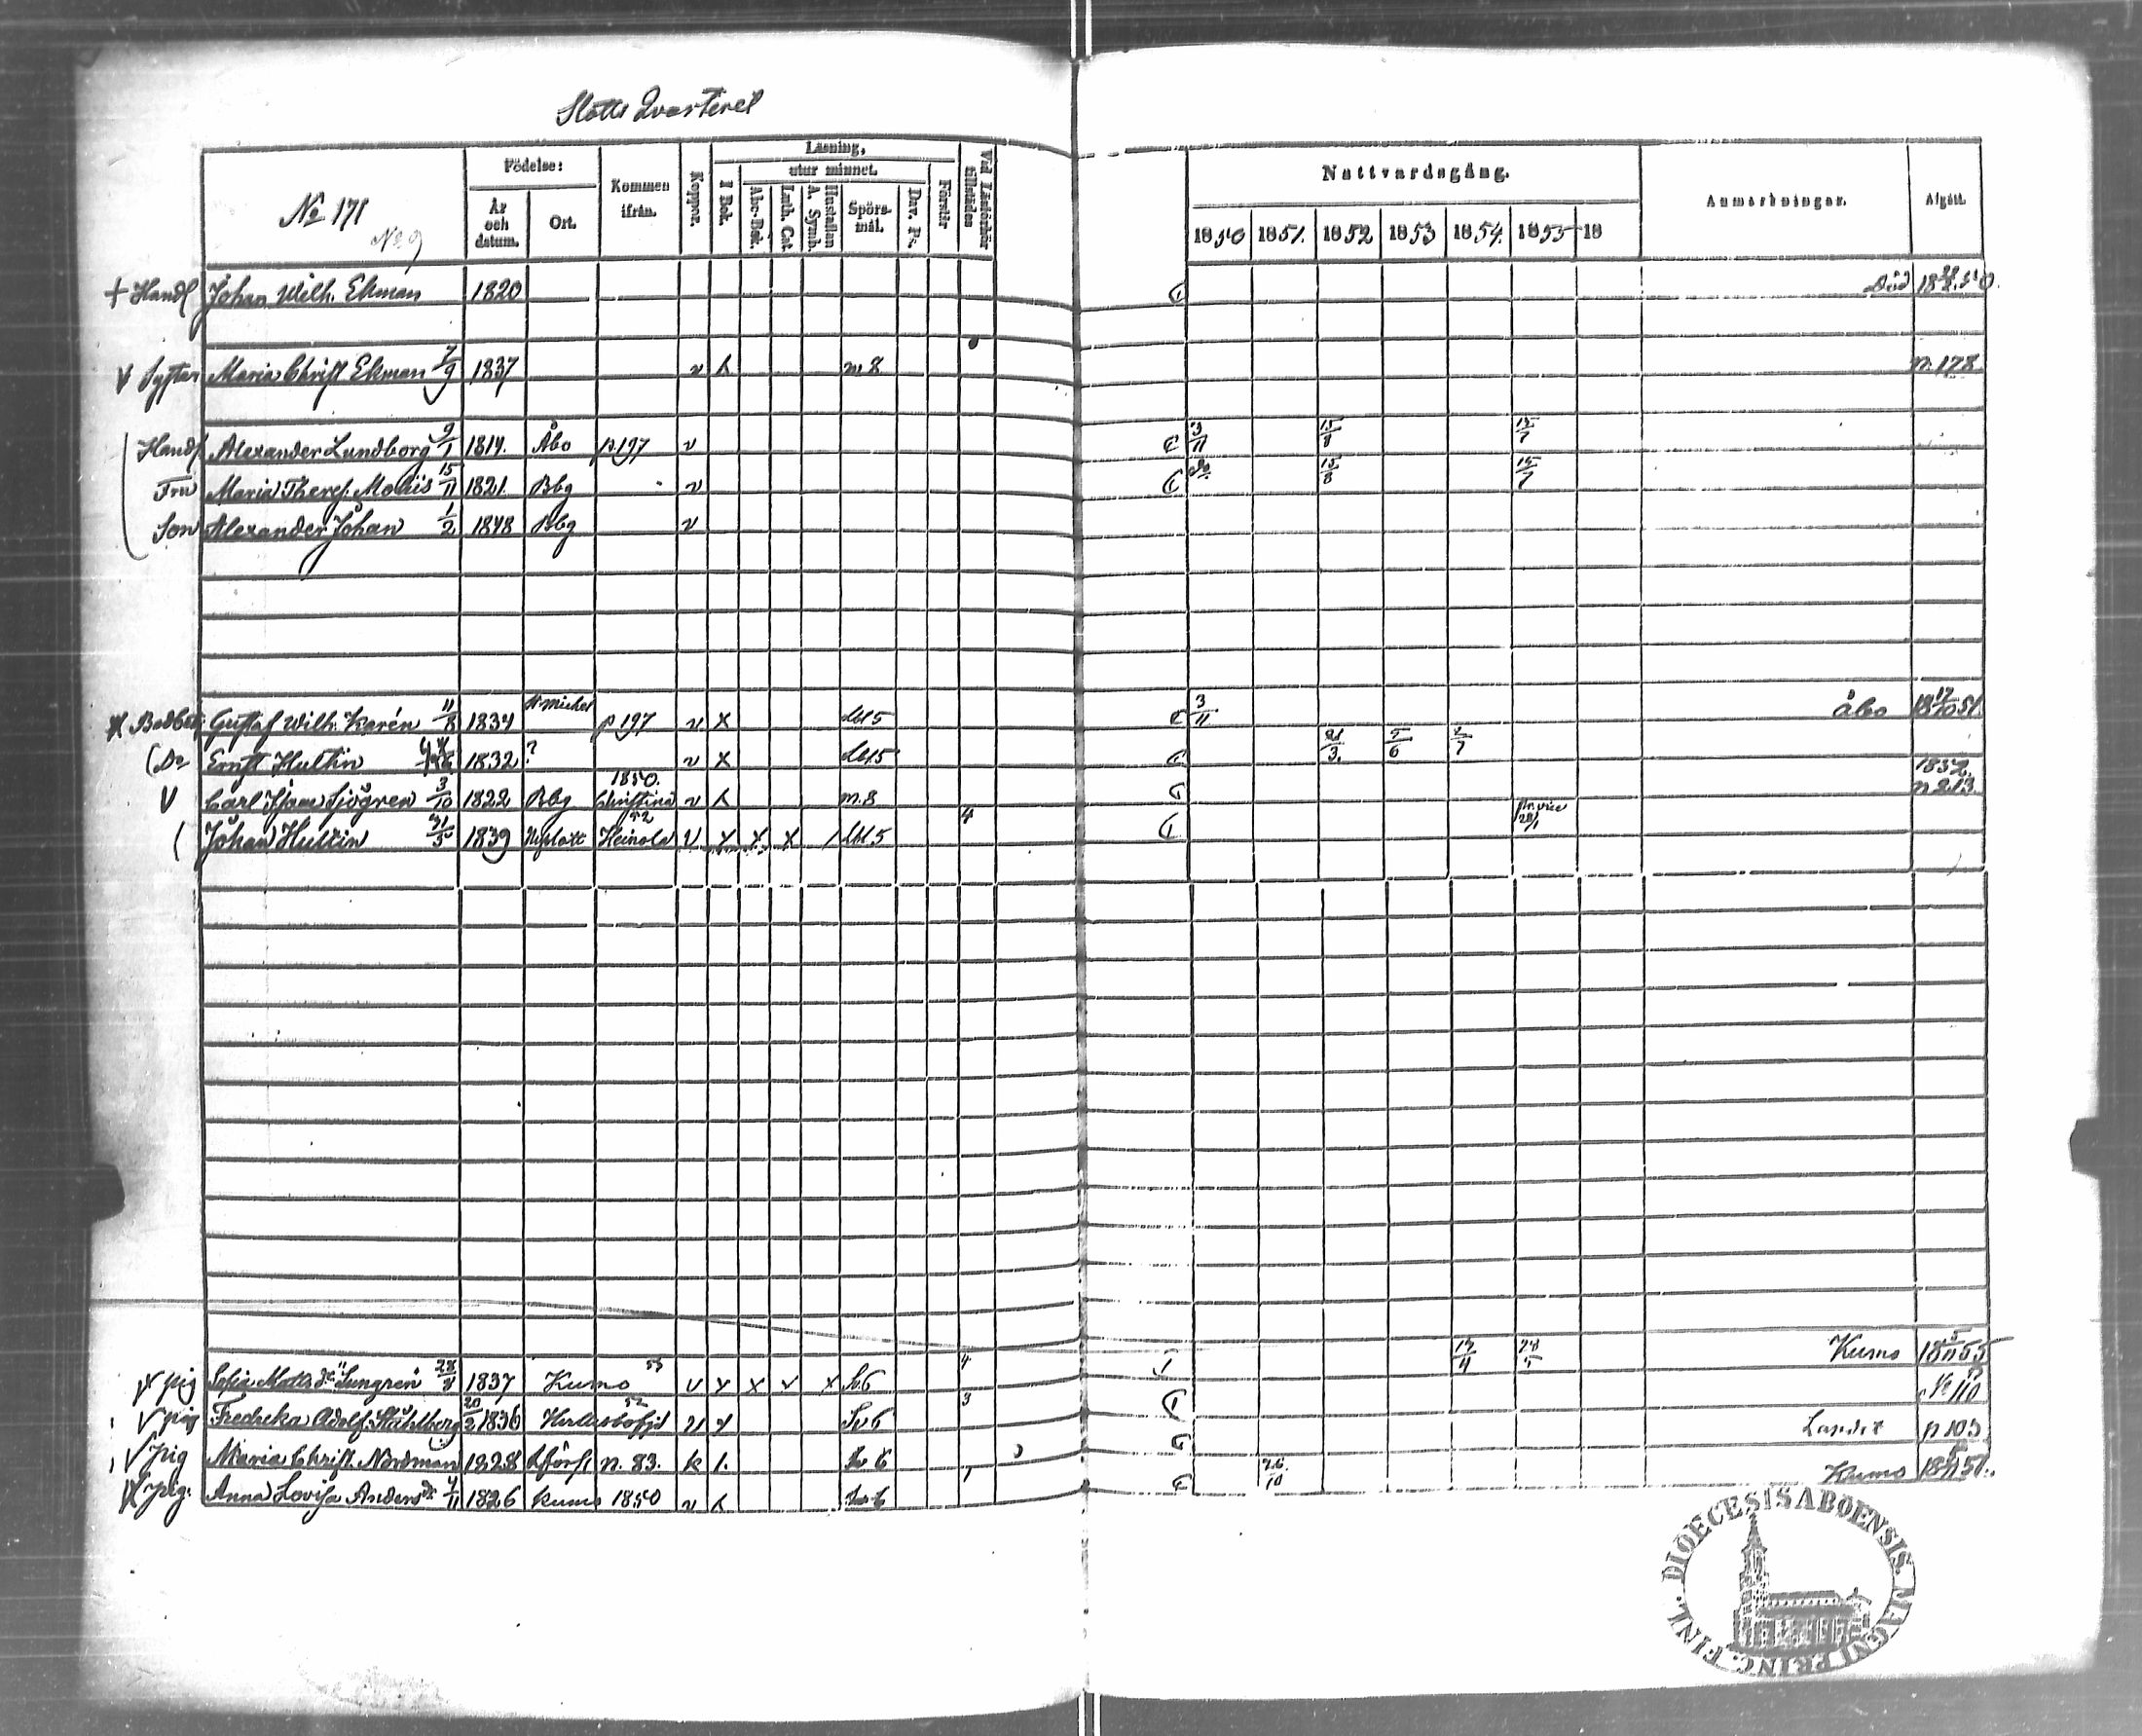 Slotts Qvarteret
Nº 171
Nº 9
Födelse:
År och datum.
Ort.
Kommen ifrån.
Koppor.
Läsning,
I Bok.
utur minnet.
Abc-Bok.
Luth. Cat.
Hustaflan A. Symb.
Spörsmål.
Dav. Ps.
Förstår
Vid Läsförhör tillstädes
Nattvardsgång.
1850 1851. 1852 1853 1854. 1855 18
Anmerkningar.
Afgått.
+ Handl Johan Wilh. Ekman 1820 Död
V Syster Maria Christ Ekman 7/9 1837 v m 8 n. 178
Handl Alexander Lundborg 9/1 1814. Åbo p 197 v 3/11 15/8 15/7
Fru Maria Theres. Moliis 15/11 1821 Bbg v do 15/8 15/7
Son Alexander Johan 1/2 1848 Bbg v
Gustaf Wilh. Karén 11/8 1834 St Michel p 197 v X 3/11 Åbo 18 17/10 51.
Do Ernst Hultin 1832 ? v X 21/3. 5/6 2/7
V Carl Hjam Sjögren 3/10 1822 Bbg 1850. Christina v m. 8 1852 n 213
Johan Hultin 31/5 1839 Nyslott Heinola 52 V X X X / 4
pig Sofia Matts dr Ljungren 28/8 1837 Kumo 55 v X X v X Sv 6 4 14/4 28/5 Kumo 18 5/11 55
V pig Fredrika Adolf. Ståhlberg 20/2 1836 52 v Sv 6 3 No 110
V pig Maria Christ. Nordman 1828 n. 83. k 1. Sv 6 Landet p 103
pig. Anna Lovisa Anders dr 4/11 1826 Kumo 1850 v Sv 6 1 26/10 Kumo 18 5/11 51.
FINL. DIOECESIS ABOENSIS. MAGNI PRINC.